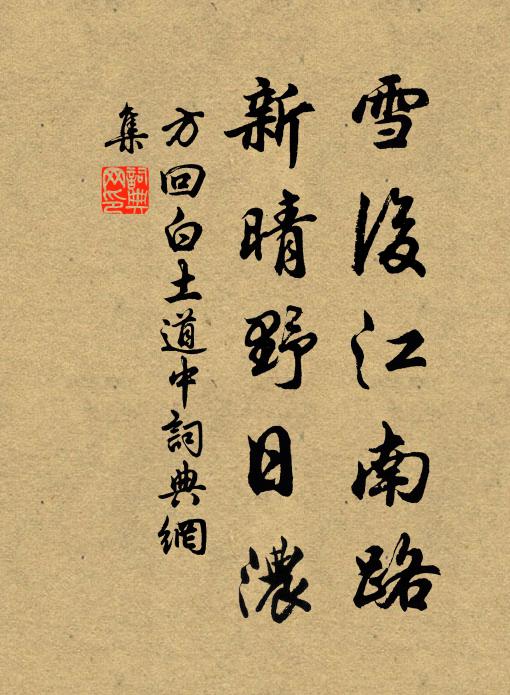 雪後江南路
新晴野日濃
方回白土道中詞典網
集
詞典網印